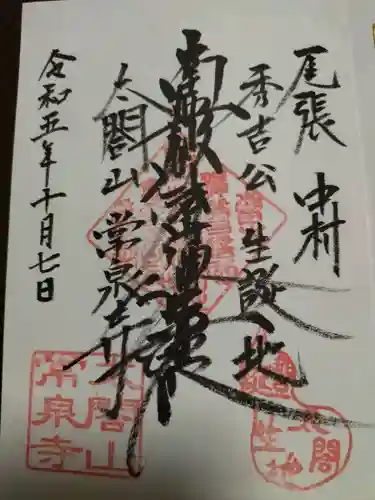 尾張 中村
秀吉公生誕之地
南無妙法蓮華経
太閤山 常泉寺
令和五年十月七日
太閤山
常泉寺
太閤